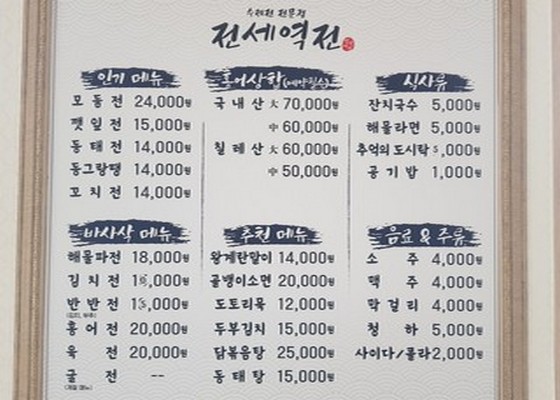 수제전 전문점
전세역전
인기 메뉴
모둠전 24,000원
깻잎전 15,000원
동태전 14,000원
동그랑땡 14,000원
꼬치전 14,000원
홍어삼합(예약필수)
국내산 大 70,000원
中 60,000원
칠레산 大 60,000원
中 50,000원
식사류
잔치국수 5,000원
해물라면 5,000원
추억의 도시락 5,000원
공기밥 1,000원
바사삭 메뉴
해물파전 18,000원
김치전
반반전
(김치, 부추)
홍어전 20,000원
육전 20,000원
굴전 --
(계절 메뉴)
추천 메뉴
왕계란말이 14,000원
골뱅이소면 20,000원
도토리묵 12,000원
두부김치 15,000원
닭볶음탕 25,000원
동태탕 15,000원
음료 & 주류
소주 4,000원
맥주 4,000원
막걸리 4,000원
청하 5,000원
사이다/콜라 2,000원